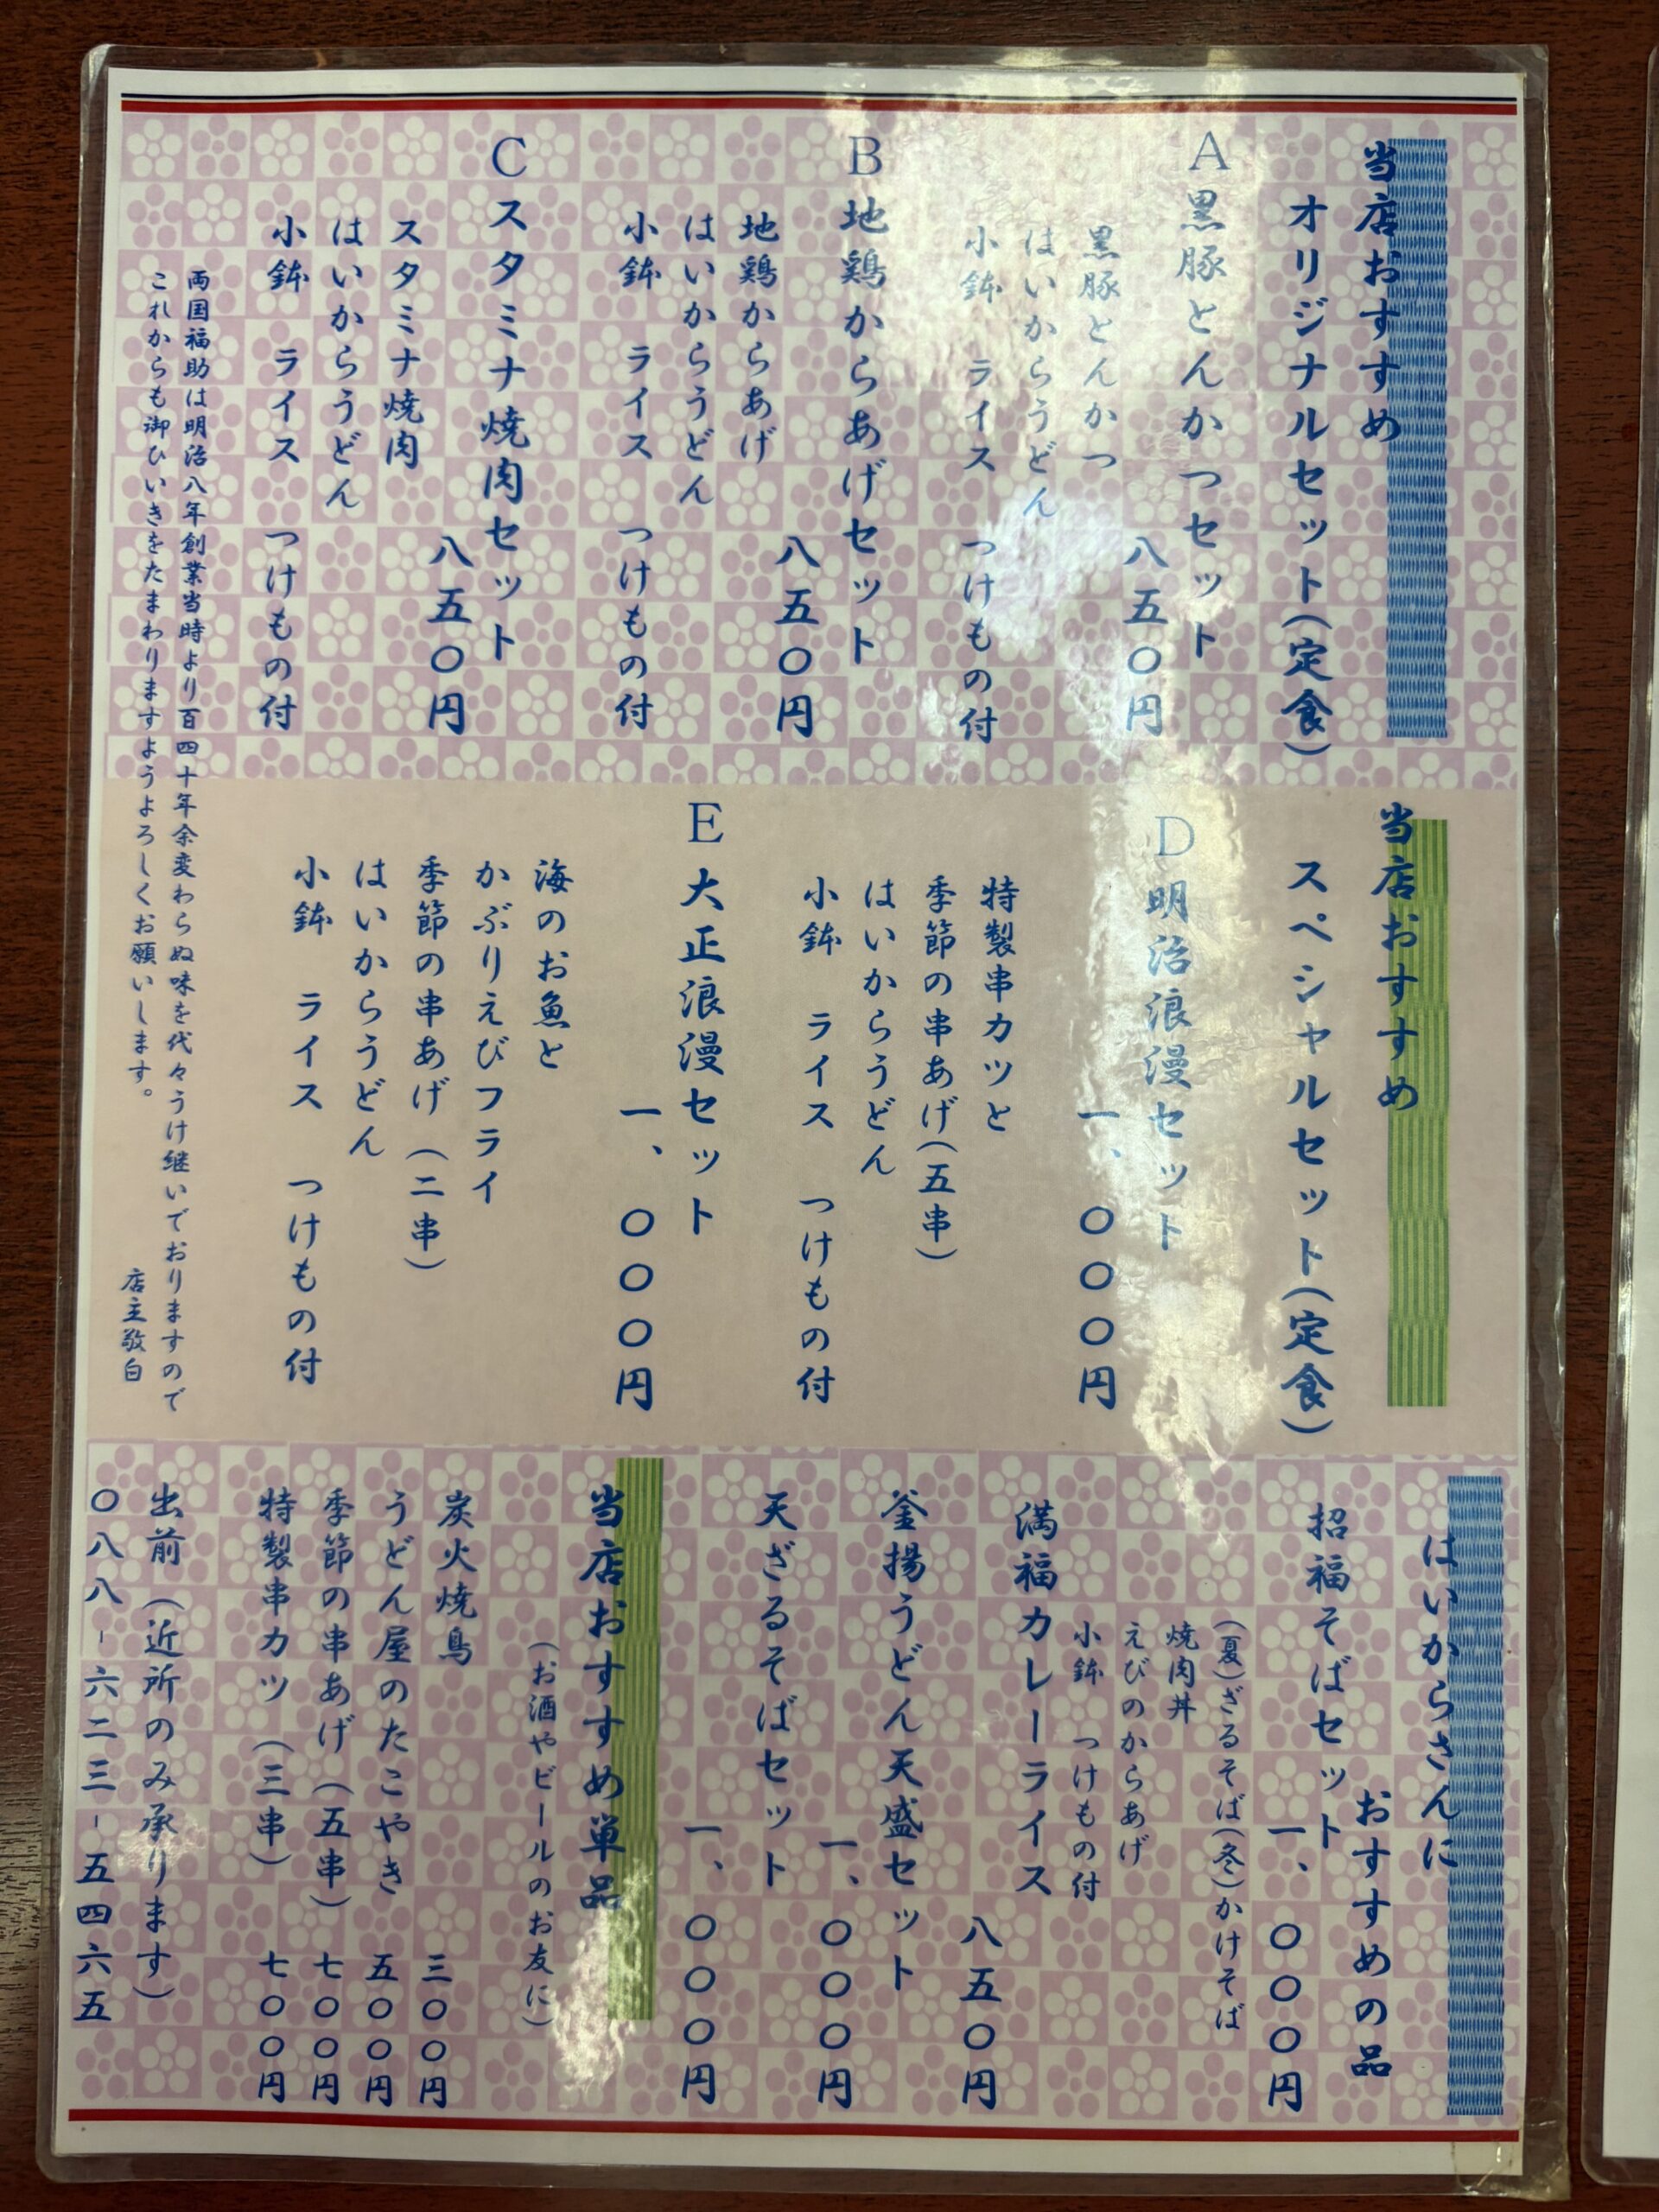 当店おすすめ
オリジナルセット(定食)
A 黒豚とんかつセット
八五〇円
黒豚とんかつ
はいからうどん
小鉢 ライス つけもの付
B 地鶏からあげセット
八五〇円
地鶏からあげ
はいからうどん
小鉢 ライス つけもの付
C スタミナ焼肉セット
八五〇円
スタミナ焼肉
はいからうどん
小鉢 ライス つけもの付
当店おすすめ
スペシャルセット(定食)
D 明治浪漫セット
一、〇〇〇円
特製串カツと
季節の串あげ(五串)
はいからうどん
小鉢 ライス つけもの付
E 大正浪漫セット
一、〇〇〇円
海のお魚と
かぶりえびフライ
季節の串あげ(二串)
はいからうどん
小鉢 ライス つけもの付
両国福助は明治八年創業当時より百四十年余変わらぬ味を代々うけ継いでおりますので
これからも御ひいきをたまわりますようよろしくお願いします。
店主敬白
はいからさんに
おすすめの品
招福そばセット
一、〇〇〇円
(夏)ざるそば(冬)かけそば
焼肉丼
えびのからあげ
小鉢 つけもの付
満福カレーライス
八五〇円
釜揚うどん天盛セット
一、〇〇〇円
天ざるそばセット
一、〇〇〇円
当店おすすめ単品
(お酒やビールのお友に)
炭火焼鳥 三〇〇円
うどん屋のたこやき 五〇〇円
季節の串あげ(五串) 七〇〇円
特製串カツ(三串) 七〇〇円
出前(近所のみ承ります)
〇八八-六二三-五四六五